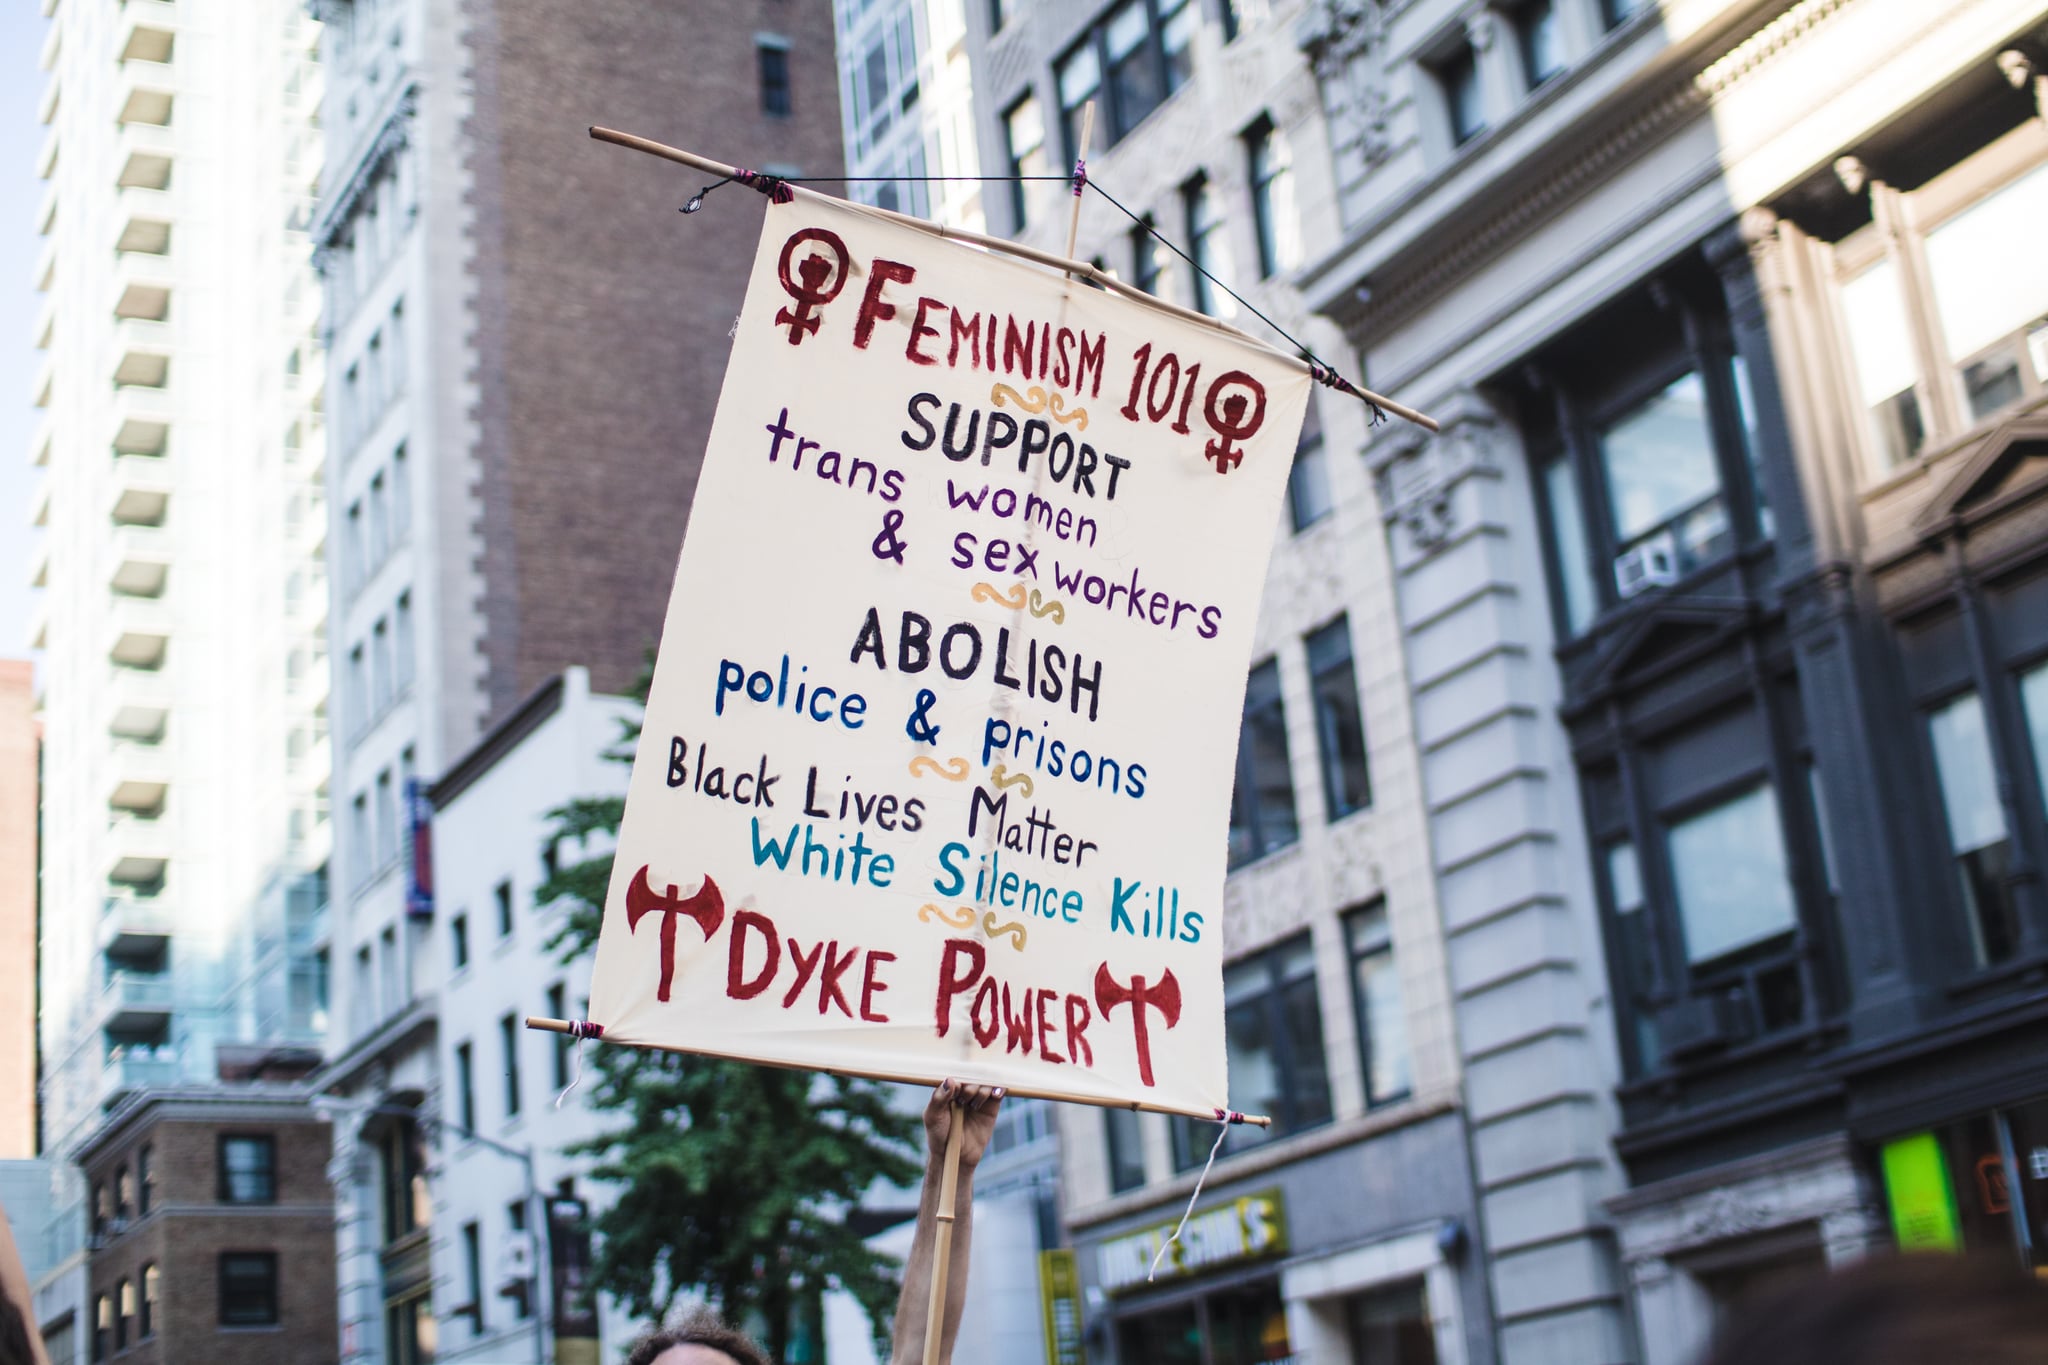 FEMINISM 101
SUPPORT
trans women
& sex workers
ABOLISH
police & prisons
Black Lives Matter
White Silence Kills
DYKE POWER
UNCLE SAM'S